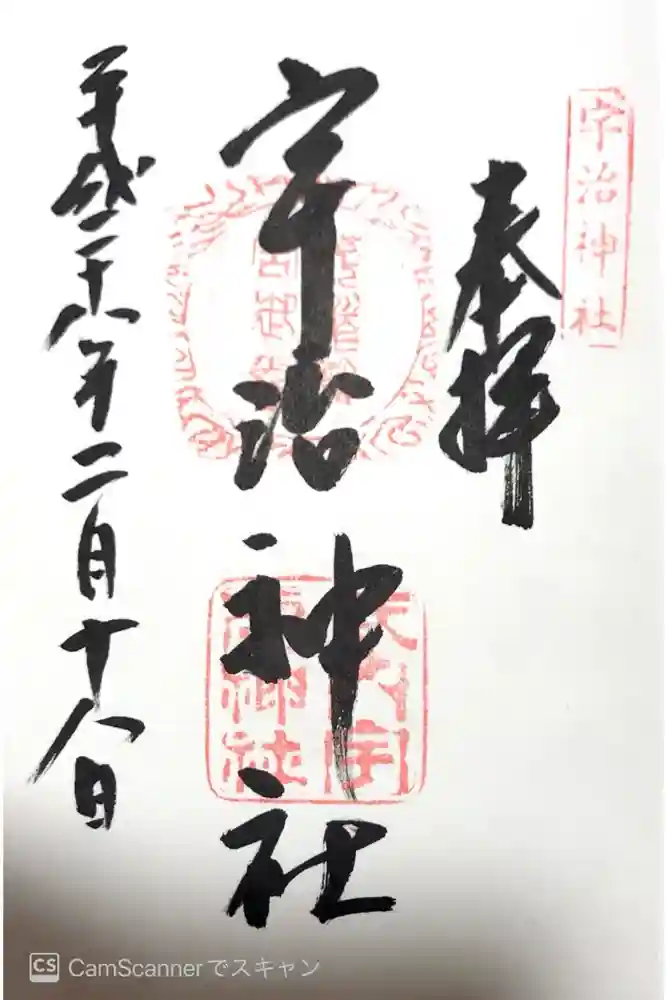 宇治神社
奉拝
宇治神社
平成二十八年二月十八日
CS CamScannerでスキャン